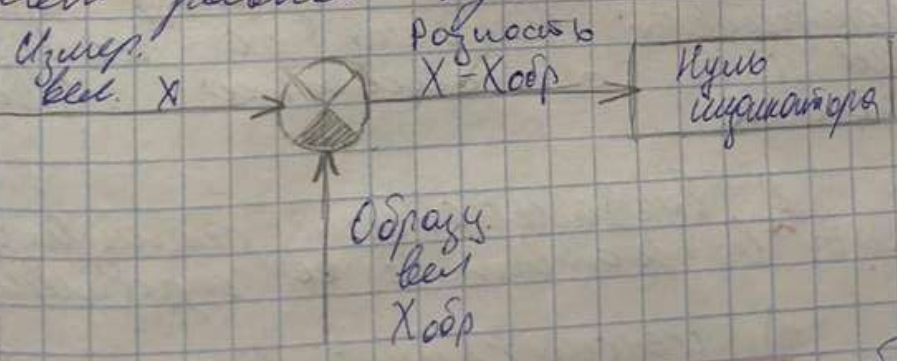 Измер.
вел. X
Разность
X - Xобр
Нуль
индикатора
Образц.
вел
Xобр